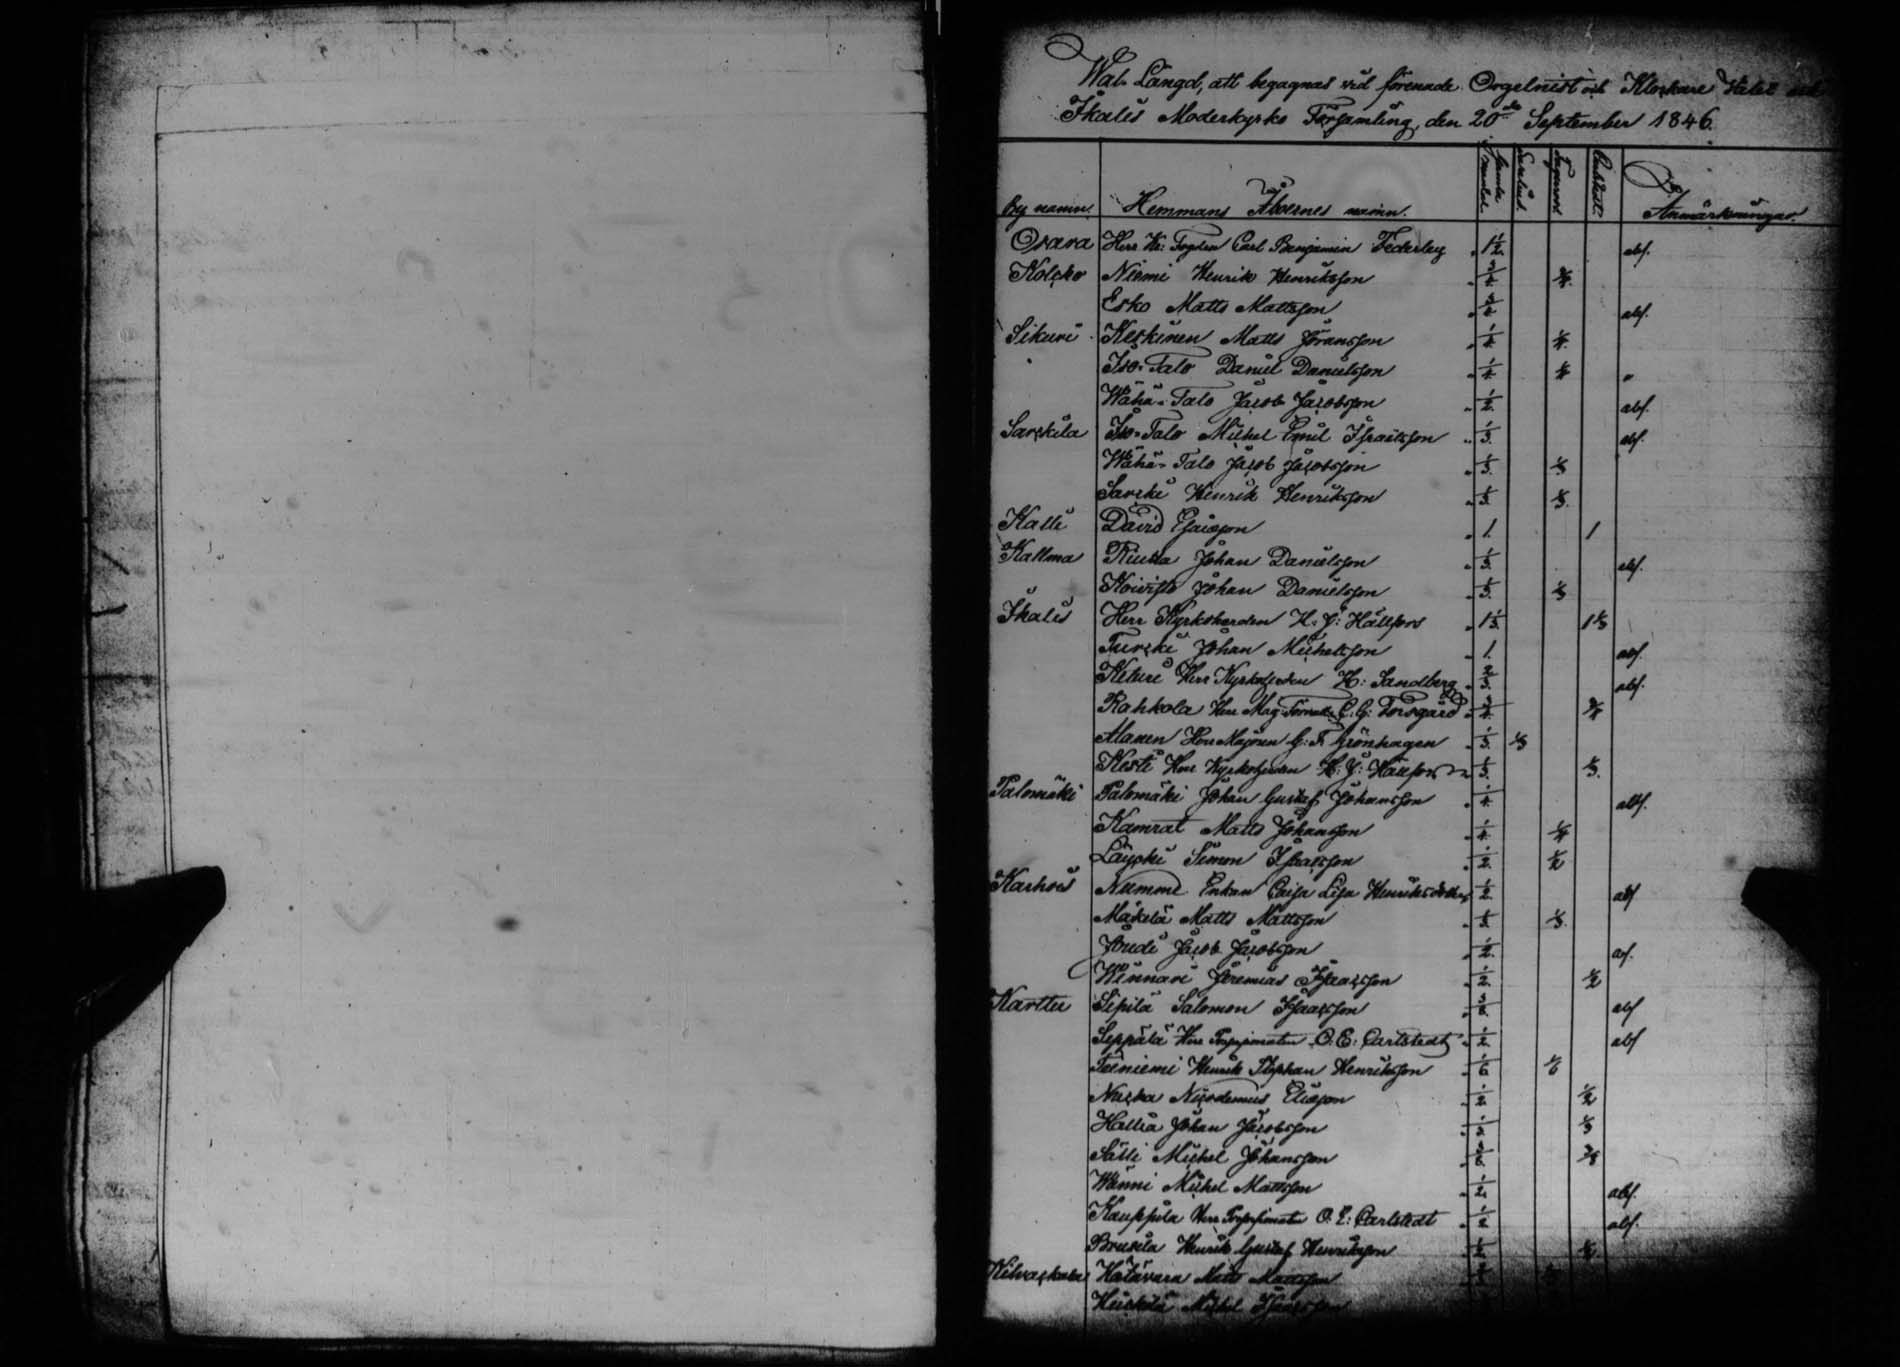 Wal-Längd, att begagnas vid förenade Orgelnist och Klockare Walet
Ikalis Moderkyrko Församling, den 20de September 1846.
By namn. Hemmans Åboernes namn. Gamla mantal. Anmärkningar.
Osara Herr Kr: Fogden Carl Benjamin Federley 1 1/2 abs.
Kolcko Niemi Henrik Henriksson 3/4 3/4
Esko Matts Mattsson abs.
Sikuri Keskinen Matts Jöransson 1/4 1/4
Iso-Talo Daniel Danielsson 1/4 1/4 "
Wähä-Talo Jacob Jacobsson 1/2 abs.
Sarckila Iso-Talo Michel Emil Israelsson 1/3 abs.
Wähä-Talo Jacob Jacobsson 1/3 1/3
Sarcki Henrik Henriksson 1/3 1/3
Kalli David Esaiasson 1 1
Kallma Johan Danielsson 1/3 abs.
Koivisto Johan Danielsson 1/3 1/3
Ikalis Herr Kyrkoherden H. J: Hällfors 1 1/3 1 1/3
Turcki Johan Michelsson 1 abs.
Keturi Herr Kyrkoherden H: Sandberg 2/3 abs.
Rahkola Herr Mag: C. G: Forsgård 3/4 3/4
Alanen Herr Majoren G: F. Grönhagen 1/3 1/3
Kesti Herr Kyrkoherden H. J: Hällfors 1/3 1/3
Palomäki Palomäki Johan Gustaf Johansson 1/4 abs.
Kamrat Matts Johansson 1/4 1/4
Simon Isaksson 1/2 1/2
Karhois Nummi Enkan Caisa Lisa Henriksdotter 1/2 abs
Mäkelä Matts Mattsson 1/3 1/3
Jacob Jacobsson 1/2 abs.
Winnari Jeremias Isaacsson 1/2 1/2
Karttu Sipilä Salomon Isaacsson 3/8 abs
Seppälä Herr O. E: Carlstedt 1/2 abs
Teiniemi Henrik Stephan Henriksson 1/6 1/6
Nicodemus Eliasson 1/2 1/2
Hallia Johan Jacobsson 1/3 1/3
Sälli Michel Johansson 3/8 3/8
Wänni Michel Mattsson 1/2 abs.
Kauppila Herr O. E: Carlstedt 1/2 abs.
Brusila Henrik Gustaf Henriksson 1/2
Matts Mattsson
Michel